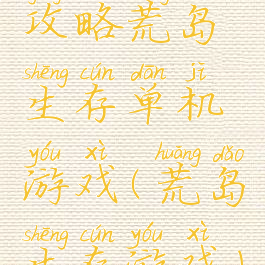 攻略荒岛
shēng cún dān jī
生存单机
yóu xì huāng dǎo
游戏(荒岛
shēng cún yóu xì
生存游戏)